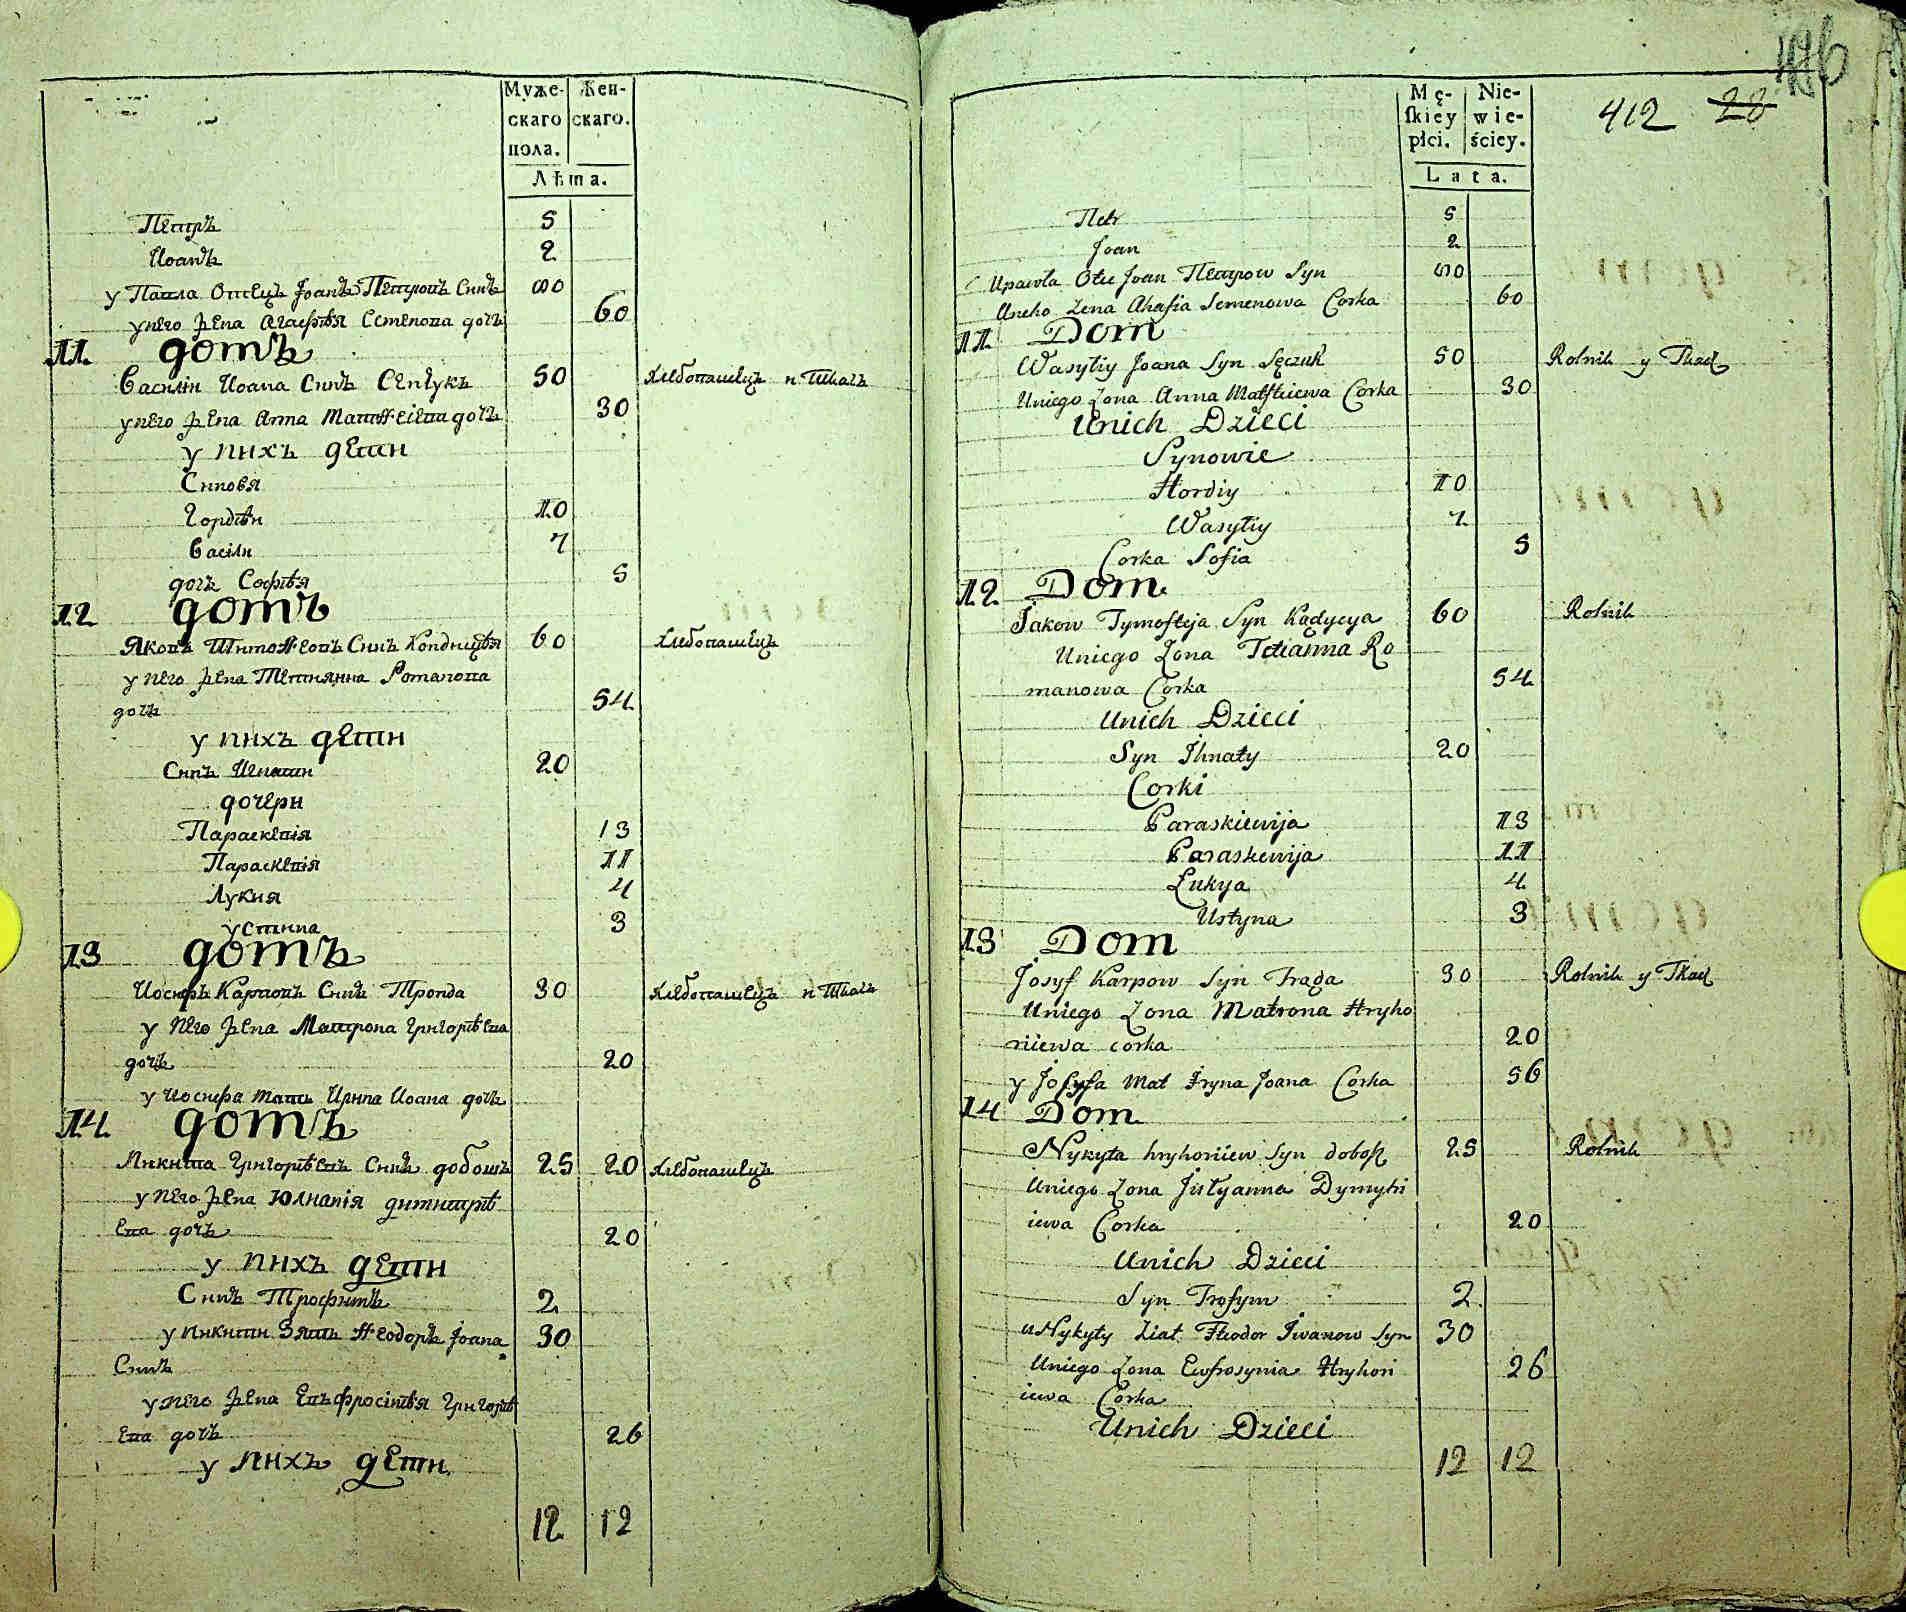 Муже-
скаго
пола.
Жен-
скаго.
Лѣта.
Петръ 5
Иоанъ 2
у Павла Отецъ Joanъ Петровъ Синъ 80
унего жена Агафѣя Семенова дочъ 60
11. домъ
Василiи Иоана Синъ Сенчукъ 50 Хлебопашецъ и Ткачъ
унего жена Анна Матѳеiева дочъ 30
у нихъ дети
Синовя
Гордѣи 10
Васiли 7
дочъ Софѣя 5
12 домъ
Яковъ Тимоѳеовъ Синъ Кондицѣя 60 Хлебопашецъ
у него жена Тетиянна Романова
дочъ 54
у нихъ дети
Синъ Игнати 20
дочери
Параскевiя 13
Параскевiя 11
Лукия 4
устина 3
13 домъ
Иосифъ Карповъ Синъ Тронда 30 Хлебопашецъ и Ткачъ
у него жена Матрона Григорѣева
дочъ 20
у Иосифа мать Ирина Иоана дочъ
14. домъ
Микита Григорѣевъ Синъ добошъ 25 20 Хлебопашецъ
у него жена Юлианiя димитрѣ
ева дочъ 20
у нихъ дети
Синъ Трофимъ 2
у Никити Зять Ѳеодоръ Joana 30
Синъ
унего жена Евъфросiнѣя Григорѣ
ева дочъ 26
у нихъ дети
12 12
Mę-
ſkiey
płci.
Nie-
wie-
ściey.
Lata.
412 28
Петr 5
Joan 2
Upawla Otec Joan Петrow Syn 80
Uneho Zena Ahafia Semenowa Corka 60
11 Dom
Wasyliy Joana Syn Sęczuk 50 Rolnik y Tkacz
Uniego Zona Anna Matfteiewa Corka 30
Unich Dzieci
Synowie
Hordiy 10
Wasyliy 7
Corka Sofia 5
12 Dom
Jakow Tymofteja Syn Kądycya 60 Rolnik
Uniego Zona Tetianna Ro
manowa Corka 54
Unich Dzieci
Syn Ihnaty 20
Corki
Paraskiewija 13
Paraskewija 11
Łukya 4
Ustyna 3
13 Dom
Josyf Karpow Syn Trąda 30 Rolnik y Tkacz
Uniego Zona Matrona Hryho
riiewa corka 20
y Josyfa Mat Iryna Joana Corka 56
14 Dom
Nykyta hryhoriiew Syn dobosz 25 Rolnik
Uniego Zona Jistyanna Dymytri
iewa Corka 20
Unich Dzieci
Syn Trofym 2
uNykyty Ziat Fteodor Iwanow Syn 30
Uniego Zona Ewfrosynia Hryhori 26
iewa Corka
Unich Dzieci
12 12